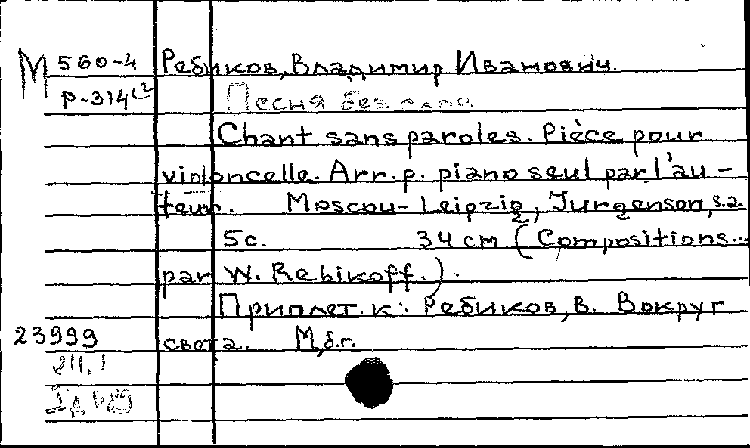 М 560-4 Ребиков, Владимир Иванович.
Р-314
Песня без слов
Chant sans paroles. Pièce pour
violoncelle. Arr. p. piano seul par l'au-
teur. Moscou-Leipzig, Jurgenson, s.a.
5c. 34 cm (Compositions...
par W. Rebikoff.).
Приплет. к: Ребиков, В. Вокруг
света. М, б.г.
23999